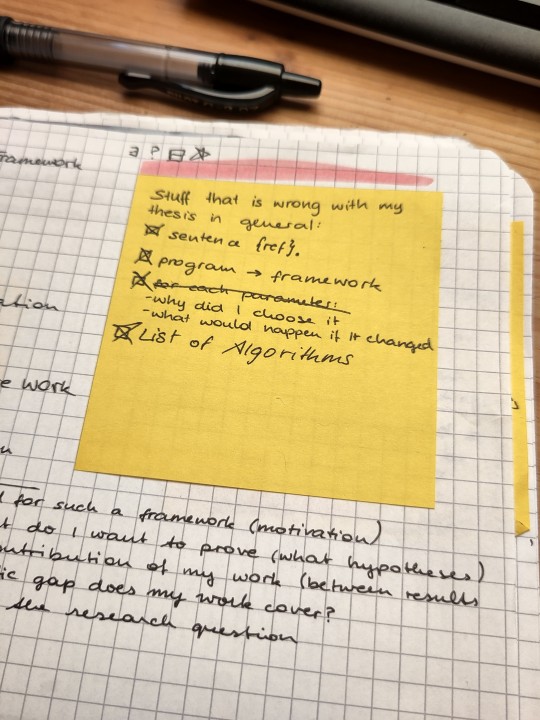 framework
Stuff that is wrong with my
thesis in general:
sentence {ref}.
program → framework
for each parameter:
-why did I choose it
-what would happen if it changed
List of Algorithms
ation
e work
for such a framework (motivation)
t do I want to prove (what hypotheses)
ontribution of my work (between results
ic gap does my work cover?
the research question